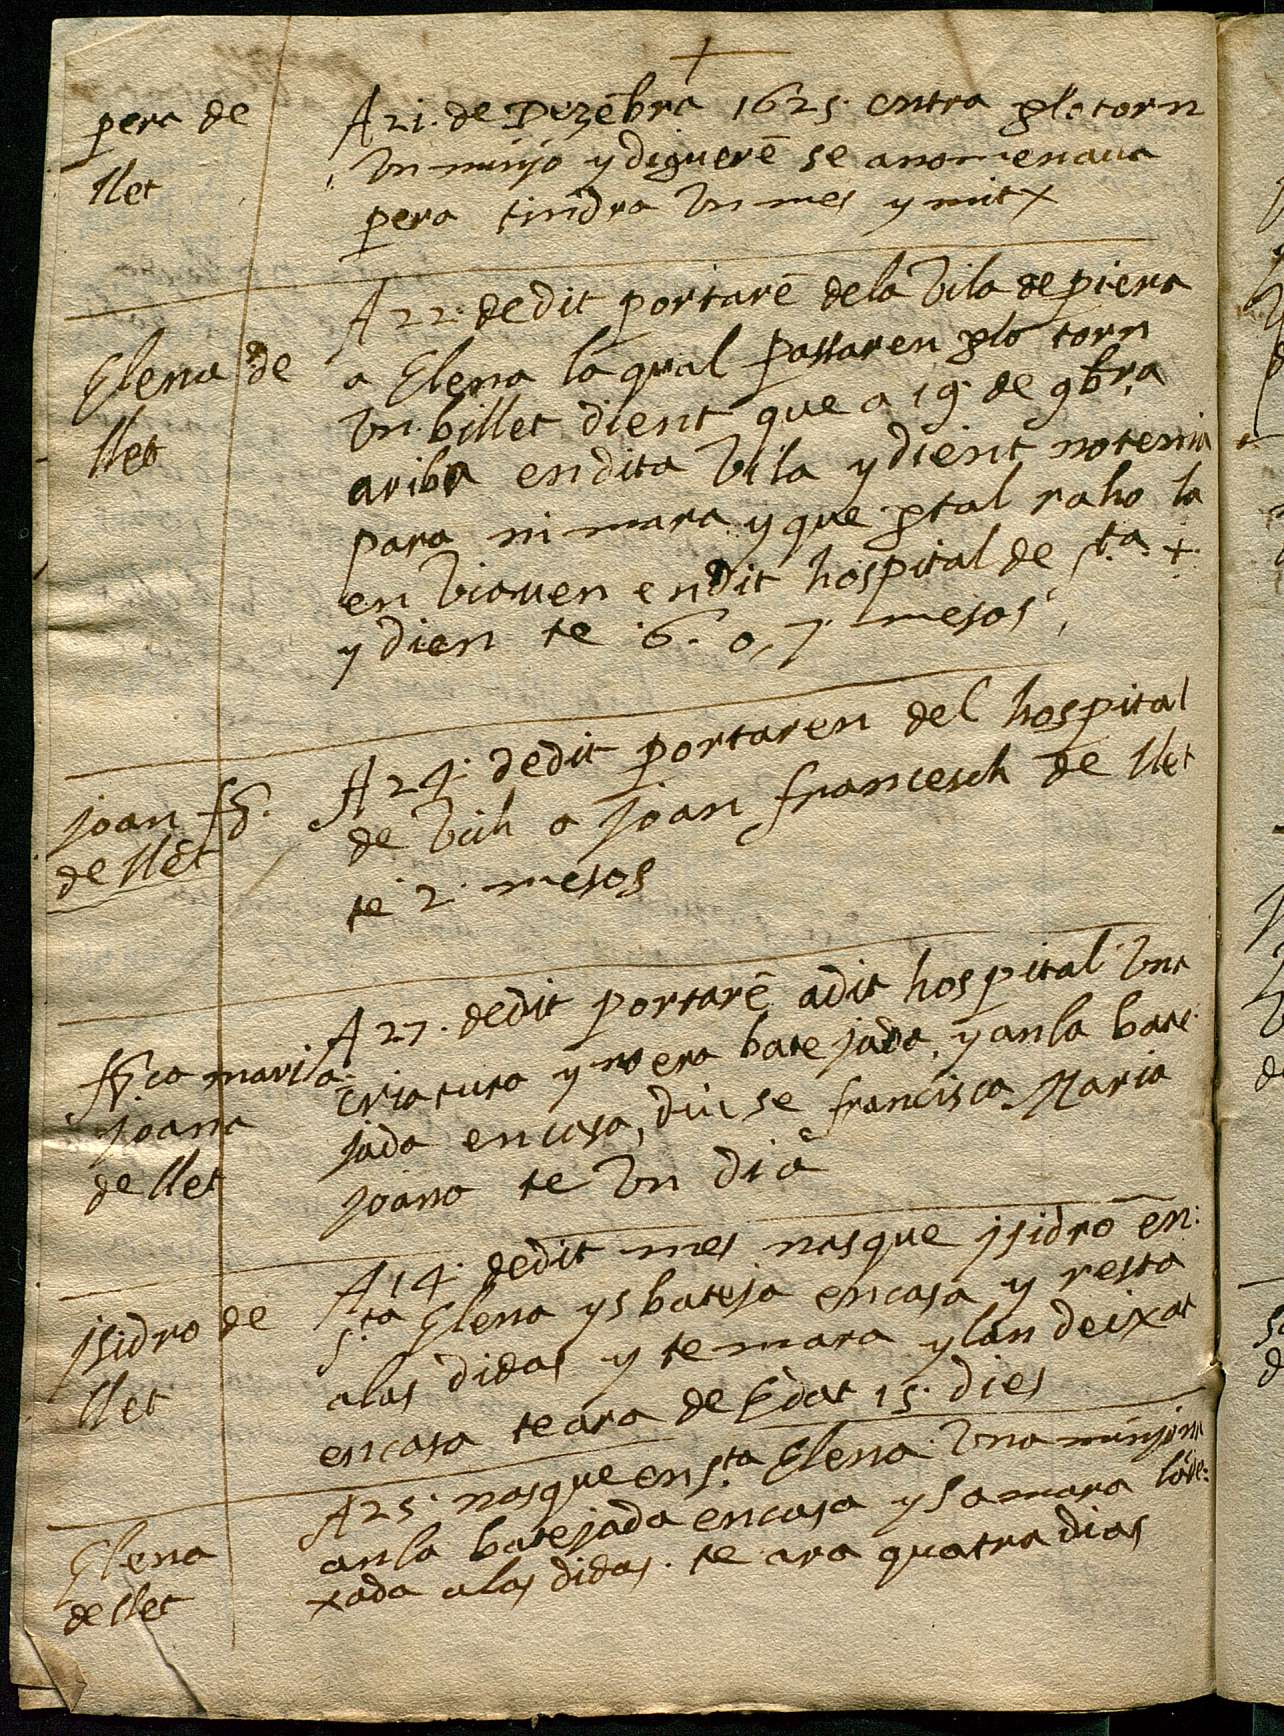 +
pera de
llet
A 21. de Dezẽbra 1625. entra plo torn
un minyo y diguerẽ se anomenava
pera tindra un mes y mitx
Elena de
llet
A 22. de dit portarẽ de la vila de piera
a Elena la qual passaren plo torn
un billet dient que a 19. de 9bra
ariba en dita vila y dient no tenia
para ni mara y que p tal raho la
en viaven en dit hospital de sta +.
y dien te 6. o, 7. mesos,
joan fc.
de llet
A 24. de dit portaren del hospital
de vich a joan francesch de llet
te 2. mesos
ffca maria
joana
de llet
A 27. de dit portarẽ a dit hospital una
criatura y no era batejada, y an la bate
jada en casa, diu se francisca Maria
joana te un dia
jsidro de
llet
A 14. de dit mes nasque jsidro en:
sta Elena y s bateja en casa y resta
a las didas y te mara y lan deixat
en casa te ara de Edat 15. dies
Elena
de llet
A 25. nasque en sta Elena una minyona
an la batejada en casa y sa mara la de:
xada a las didas. te ara quatra dias